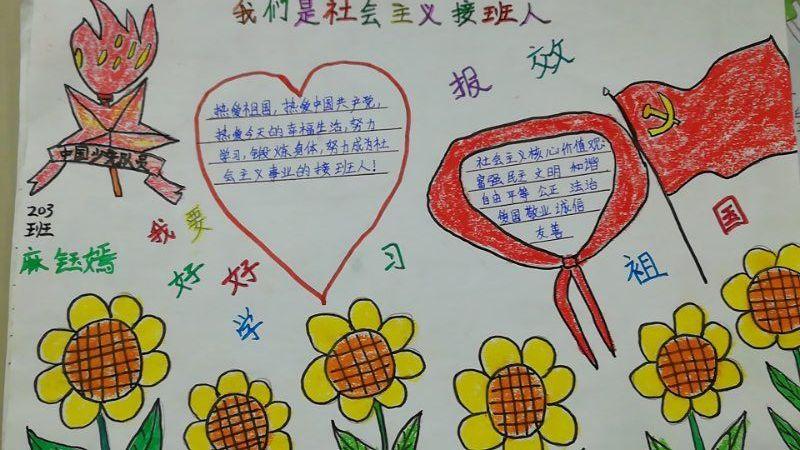 我们是社会主义接班人
中国少年队员
203
班
麻钰嫣
热爱祖国，热爱中国共产党，
热爱今天的幸福生活，努力
学习，锻炼身体，努力成为社
会主义事业的接班人！
我要
好好
学
习
报效
祖
国
社会主义核心价值观：
富强 民主 文明 和谐
自由 平等 公正 法治
爱国 敬业 诚信
友善